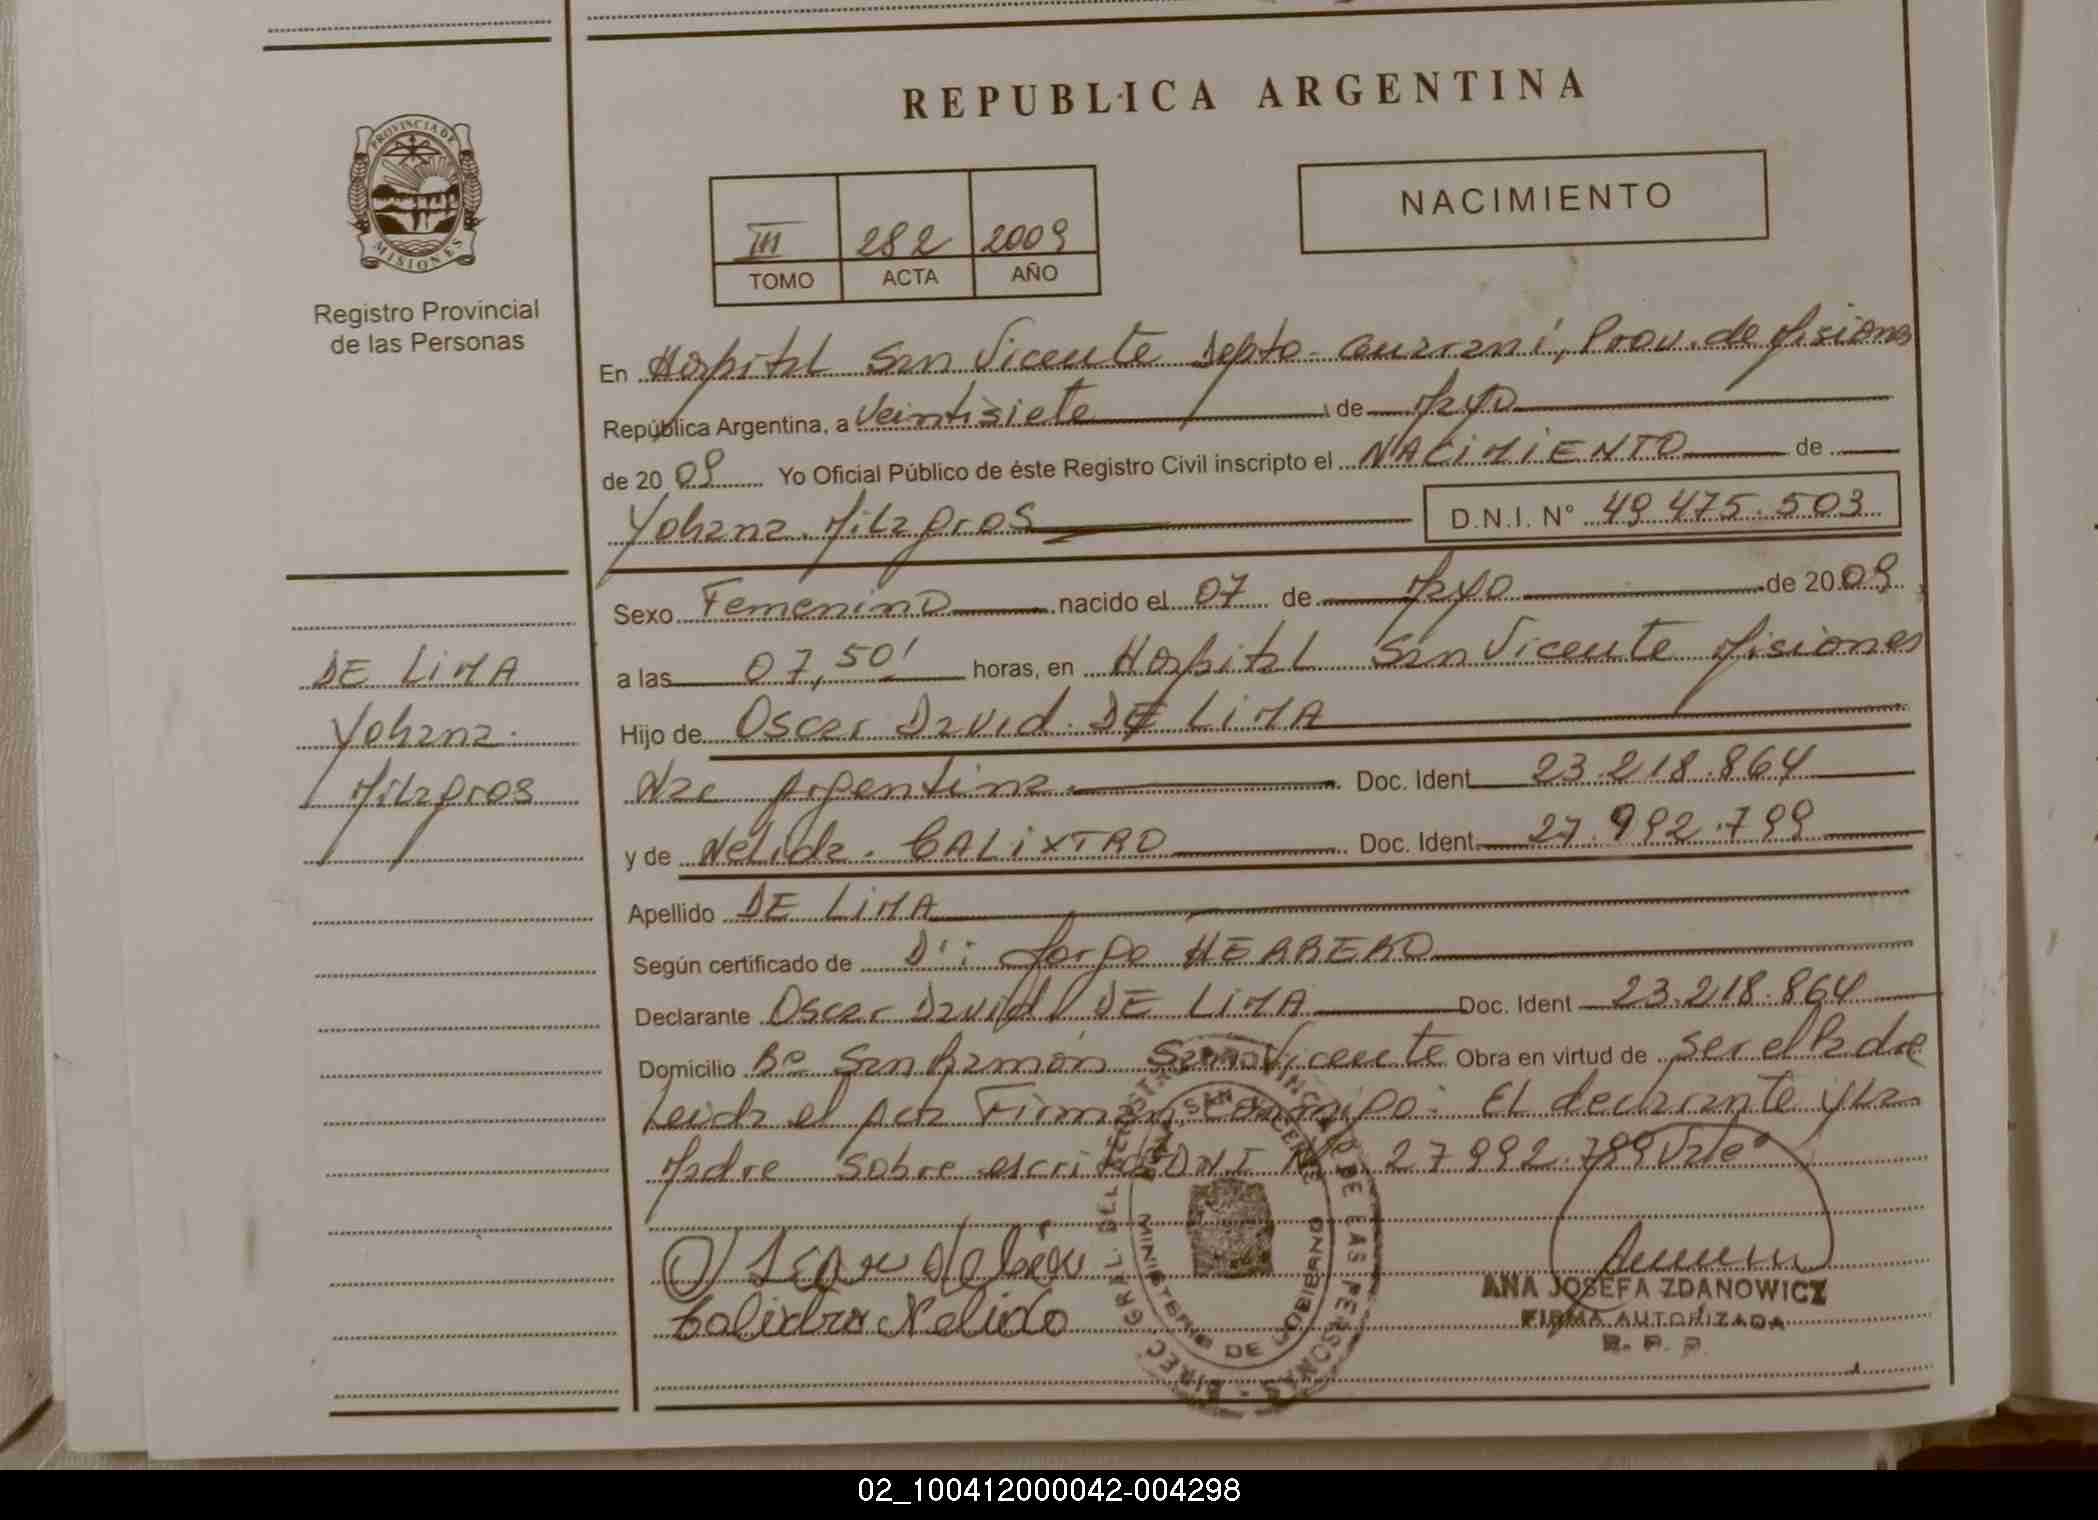 REPUBLICA ARGENTINA
PROVINCIA DE
MISIONES
Registro Provincial
de las Personas
III 282 2009
TOMO ACTA AÑO
NACIMIENTO
En Hospital San Vicente Depto. Guarani, Prov. de Misiones
República Argentina, a Veintisiete de Mayo
de 2009 Yo Oficial Público de éste Registro Civil inscripto el NACIMIENTO de
Yohana Milagros D.N.I. N° 49.475.503
Sexo Femenino nacido el 07 de Mayo de 2009
a las 07,50' horas, en Hospital San Vicente Misiones
Hijo de Oscar David DE LIMA
Nac Argentina Doc. Ident 23.218.864
y de Nelida CALIXTRO Doc. Ident 27.992.799
Apellido DE LIMA
Según certificado de Dr: Jorge HERRERO
Declarante Oscar David DE LIMA Doc. Ident 23.218.864
Domicilio Bº San Ramón San Vicente Obra en virtud de ser el Padre
Leida el acta Firman conmigo: El declarante y la
Madre sobre escrito DNI Nº 27992.799 Vale
DE LIMA
Yohana
Milagros
Nelida
ANA JOSEFA ZDANOWICZ
FIRMA AUTORIZADA
R. P. P.
DIREC. GRAL. DEL REGISTRO PROVINCIAL DE LAS PERSONAS
SAN VICENTE
MINISTERIO DE GOBIERNO
02_100412000042-004298